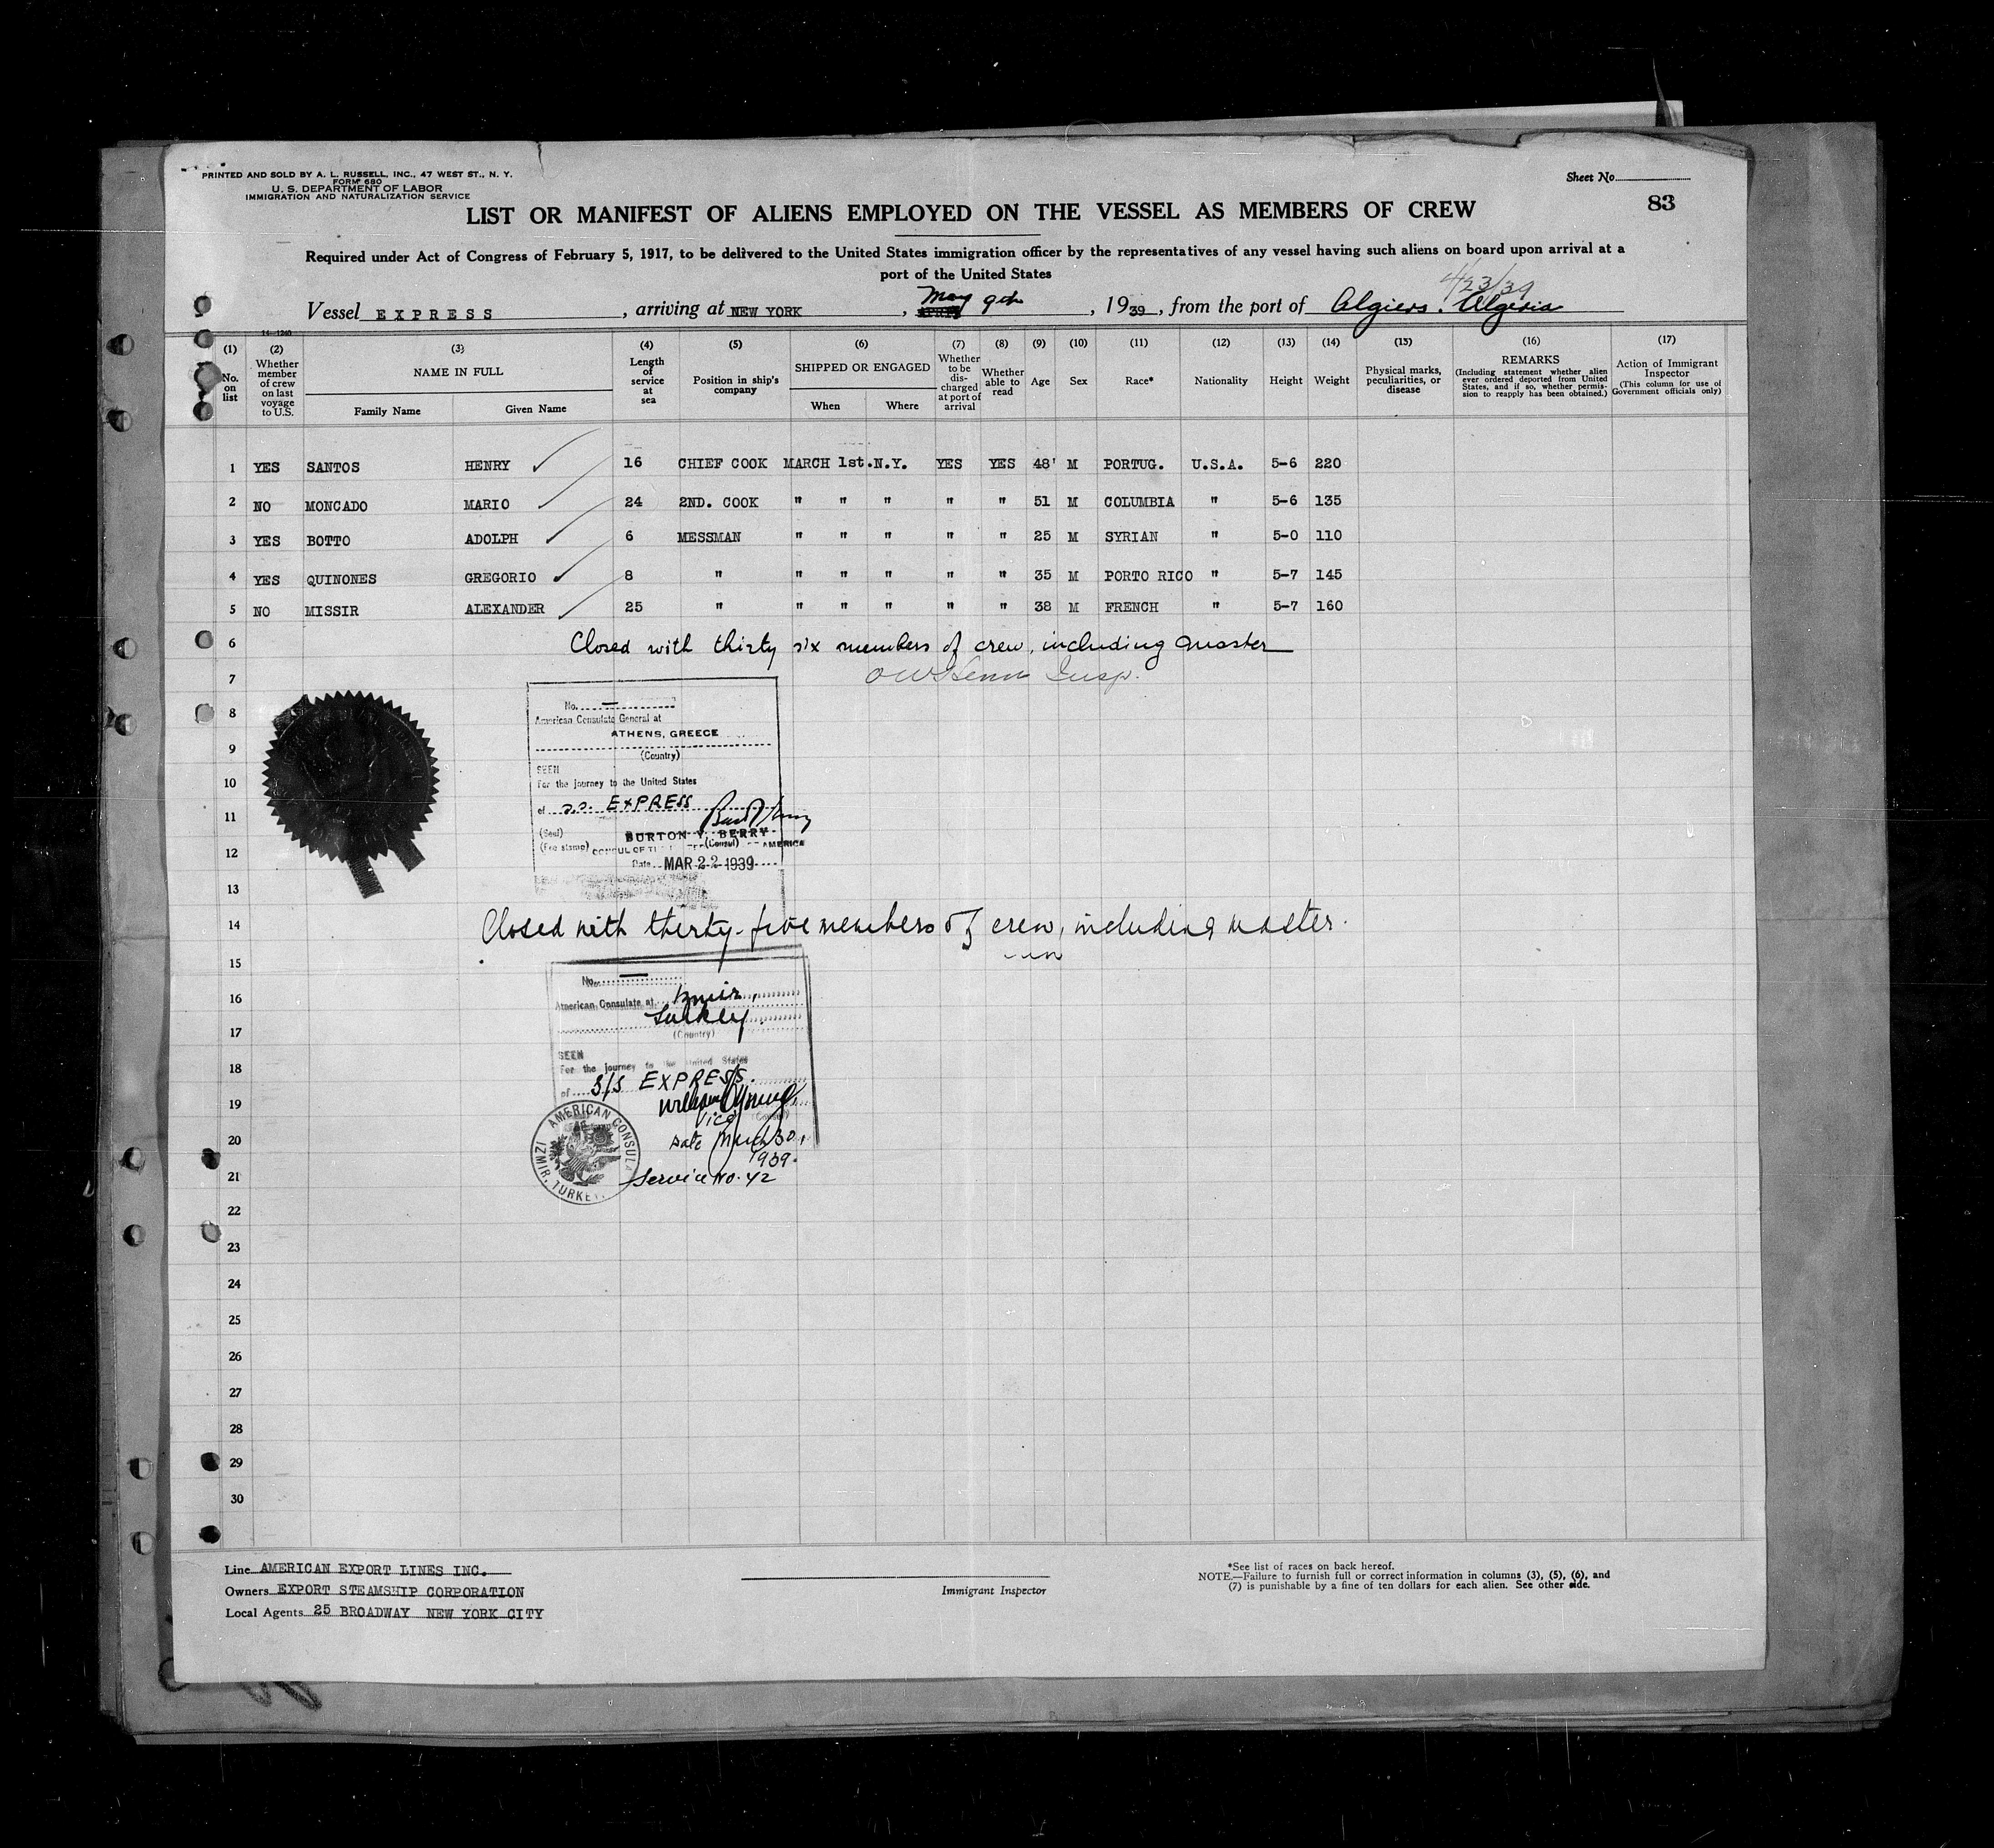 PRINTED AND SOLD BY A. L. RUSSELL, INC., 47 WEST ST., N. Y.
FORM 680
U. S. DEPARTMENT OF LABOR
IMMIGRATION AND NATURALIZATION SERVICE
Sheet No.
83
LIST OR MANIFEST OF ALIENS EMPLOYED ON THE VESSEL AS MEMBERS OF CREW
Required under Act of Congress of February 5, 1917, to be delivered to the United States immigration officer by the representatives of any vessel having such aliens on board upon arrival at a
port of the United States
4/23/39
Vessel EXPRESS, arriving at NEW YORK, May 9th, 1939, from the port of Algiers. Algeria
14-1240
(1) (2) (3) (4) (5) (6) (7) (8) (9) (10) (11) (12) (13) (14) (15) (16) (17)
No. on list
Whether member of crew on last voyage to U.S.
NAME IN FULL
Family Name Given Name
Length of service at sea
Position in ship's company
SHIPPED OR ENGAGED
When Where
Whether to be discharged at port of arrival
Whether able to read
Age
Sex
Race*
Nationality
Height
Weight
Physical marks, peculiarities, or disease
REMARKS
(Including statement whether alien ever ordered deported from United States, and if so, whether permission to reapply has been obtained.)
Action of Immigrant Inspector
(This column for use of Government officials only)
1 YES SANTOS HENRY 16 CHIEF COOK MARCH 1st. N.Y. YES YES 48 M PORTUG. U.S.A. 5-6 220
2 NO MONCADO MARIO 24 2ND. COOK " " " " " 51 M COLUMBIA " 5-6 135
3 YES BOTTO ADOLPH 6 MESSMAN " " " " " 25 M SYRIAN " 5-0 110
4 YES QUINONES GREGORIO 8 " " " " " " 35 M PORTO RICO " 5-7 145
5 NO MISSIR ALEXANDER 25 " " " " " " 38 M FRENCH " 5-7 160
6 Closed with thirty six members of crew, including master
7 Insp.
8
No.
American Consulate General at
ATHENS, GREECE
9
(Country)
10
SEEN
For the journey to the United States
11
of s.s. EXPRESS
(Seal) BURTON Y. BERRY
12
(Fee stamp) (Consul) AMERICA
Date MAR 22 1939
13
14 Closed with thirty-five members of crew, including master.
15
No.
16
American Consulate at Izmir,
Turkey.
17
(Country)
SEEN
18
For the journey to the United States
of S/S EXPRESS.
19
Vice (Consul)
20
Date March 30,
1939.
21
Service No. 42
AMERICAN CONSULA
IZMIR, TURKEY.
22
23
24
25
26
27
28
29
30
Line AMERICAN EXPORT LINES INC.
Owners EXPORT STEAMSHIP CORPORATION
Local Agents 25 BROADWAY NEW YORK CITY
Immigrant Inspector
*See list of races on back hereof.
NOTE.—Failure to furnish full or correct information in columns (3), (5), (6), and
(7) is punishable by a fine of ten dollars for each alien. See other side.